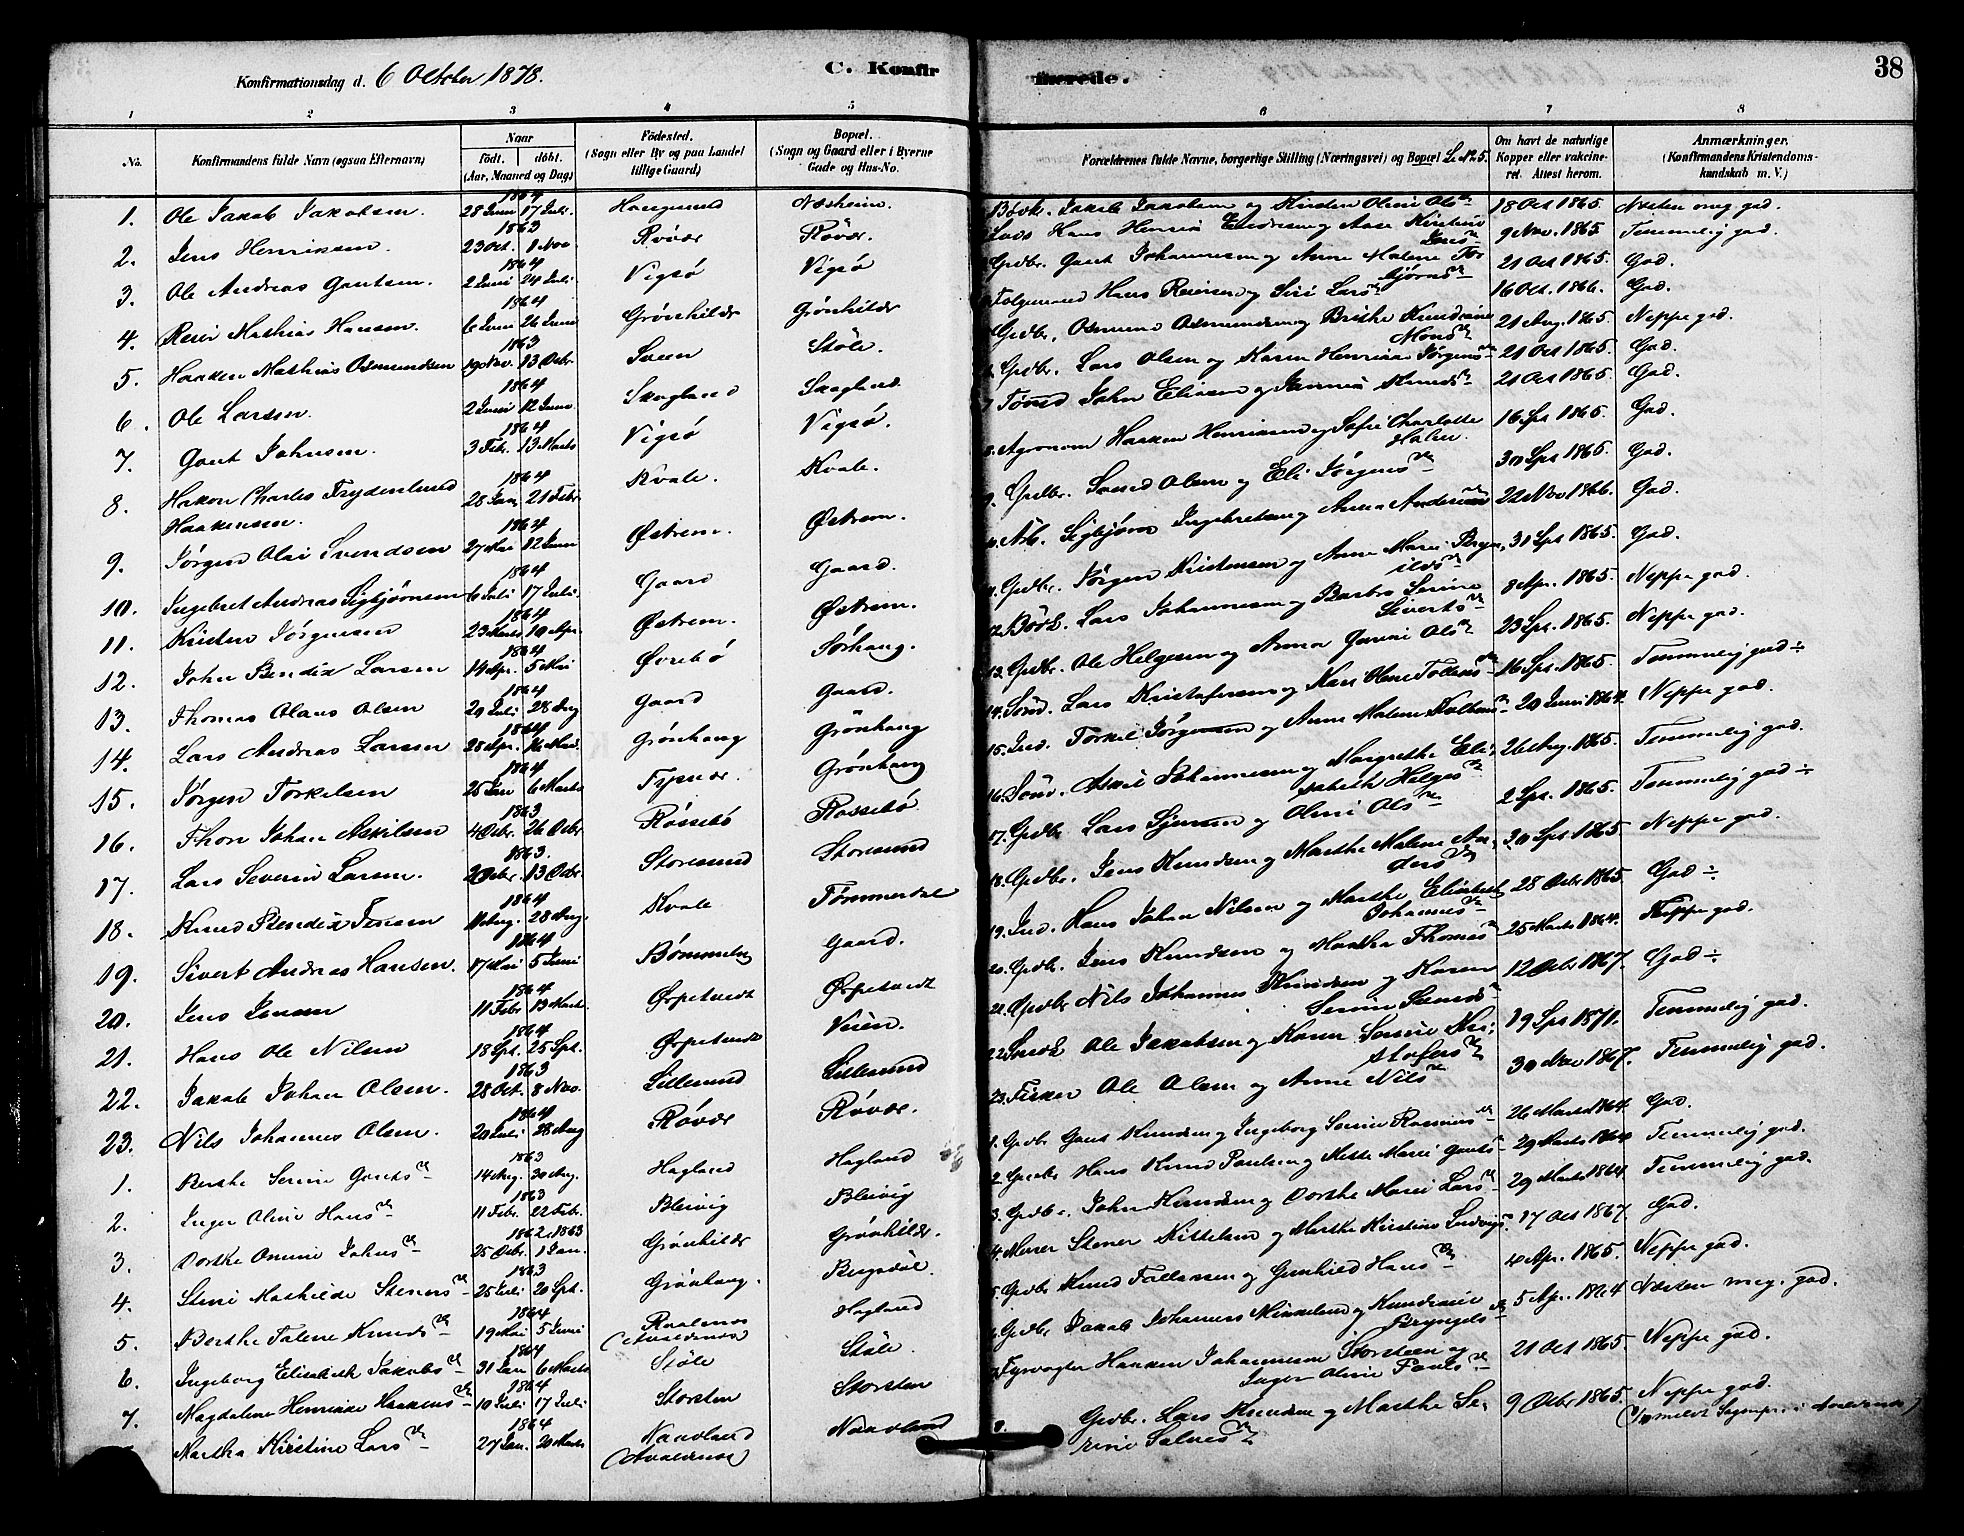 Konfirmationsdag d. 6 October 1878.
C. Konfirmerede.
38
1 2 3 4 5 6 7 8
No. Konfirmandens fulde Navn (ogsaa Efternavn) Naar födt. döbt. (Aar, Maaned og Dag) Födested. (Sogn eller By og paa Landet tillige Gaard) Bopæl. (Sogn og Gaard eller i Byerne Gade og Hus-No. Forældrenes fulde Navne, borgerlige Stilling (Næringsvei) og Bopæl Se No 5. Om havt de naturlige Kopper eller vakcineret. Attest herom. Anmærkninger. (Konfirmandens Kristendomskundskab m. V.)
1. Ole Jakob Jakobsen. 1864 28 Juni 17 Juli Haugesund Næsheim. Jakob Jakobsen og Kirsten Oline Ols 18 Oct 1865 Næsten meg. god.
2. Jens Henriksen. 1863 23 Oct. 1 Nov Røvær Røvær. Lods Hans Henrik Endresen og Aase Kirstine Jens 9 Nov. 1865 Temmelig god.
3. Ole Andreas Gautsen. 1864 2 Juni 24 Juli Vigsø Vigsø Gdbr. Gaut Johannesen og Anne Malene Torbjørns 21 Oct 1865. God.
4. Reier Mathias Hansen 1864 6 Juni 26 Juni Grönhilder Grönhilder Hans Reiersen og Siri Lars 16 Oct. 1866. God.
5. Haaken Mathias Osmundsen 1863 19 Nov. 13 Decbr Sveen Støle. Gdbr. Osmund Osmundsen og Brithe Mons 21 Aug. 1865. Neppe god.
6. Ole Larsen. 1864 2 Juni 12 Juni Skogland Skogland. Gdbr. Lars Olsen og Karen Henrikke Jørgens 21 Oct 1865. God.
7. Gaut Johnsen. 1864 3 Febr. 13 Marts Vigsø Vigsø. John Eliasen og Knuds 21 Oct 1865. God.
8. Hakon Charles Frydenlund Haakensen. 1864 28 Jan 21 Febr Kvale. Kvale. Agronom Haaken Henriksen og Sofie Charlotte Holm. 16 Spt 1865. God.
9. Jørgen Olai Svendsen 1864 27 Mai 12 Juni Østrem. Østrem. Gdbr. Svend Olsen og Eli Jørgens 30 Spt 1865. God.
10. Ingebret Andreas Sigbjørnsen 1864 6 Juli 17 Juli Gaard Gaard. Arb. Sigbjørn Ingebretsen og Anna Anders 22 Nov 1866. God.
11. Kristen Jørgensen 1864 23 Marts 10 Apr. Østrem. Østrem. Gdbr. Jørgen Kristensen og Anne Marie 31 Spt 1865. God.
12. John Bendix Larsen 1864 14 Apr. 5 Mai Øvrebø Sørhaug. Lars Johannesen og Barbro Serine Siverts 8 Apr. 1865. Neppe god.
13. Thomas Olaus Olsen 1864 20 Juli 28 Aug Gaard Gaard. Gdbr. Ole Helgesen og Anna Ols 23 Spt. 1865. Neppe god.
14. Lars Andreas Larsen 1864 28 Apr. 16 Mai. Grønhaug Grønhaug Lars Kristofersen og Kari Oline Tollevs 16 Spt. 1865. Temmelig god ÷
15. Jørgen Torkelsen 1864 25 Jan 6 Marts Tysvær. Grönhaug Ind. Torkel Jørgensen og Anne Malene 20 Juni 1864. Neppe god.
16. Thor Johan Askilsen 1863 4 Octbr. 26 Octbr Røssebø Rossebø Askil Johannesen og Margrethe Elisabeth Helges 26 Aug. 1865. Temmelig god.
17. Lars Severin Larsen. 1863. 13 Octbr. Storesund Storesund Gdbr Lars Sjursen og Oline Ols 2 Spt. 1865. Temmelig god ÷
18. Knud Bendix Jensen 1864 11 Aug. 28 Aug. Kvale Tømmerdal Gdbr. Jens Knudsen og Marthe Malene Anders 30 Spt 1865 Neppe god.
19. Sivert Andreas Hansen. 1864 17 Mai 5 Juni Bømmeløy Gaard. Ind. Hans Johan Nilsen og Marthe Elisabet Johannes 28 Octbr 1865 God ÷
20. Jens Jensen 1864 11 Febr 13 Marts Ørpetvedt Ørpetvedt Gdbr. Jens Knudsen og Martha Thomas 25 Marts 1864. Neppe god.
21. Hans Ole Nilsen 1864 18 Spt. 25 Spt. Ørpetvedt Veien. Gdbr Nils Johannes Knudsen og Karen Serine Svends 12 Octbr 1867. God ÷
22. Jakob Johan Olsen. 1863 28 Oct. 8 Nov. Lillesund Lillesund Ole Jakobsen og Karen Serine Kristofers 19 Spt 1871. Temmelig god.
23. Nils Johannes Olsen. 1864 20 Juli 28 Aug Røvær Røvær. Fisker Ole Olsen og Anne Nils 30 Nov 1867. Temmelig god.
1. Berthe Serine Gauts 1863 14 Aug. 30 Aug. Hagland Hagland Gdbr Gaut Knudsen og Ingeborg Serine Rasmus 26 Marts 1864. God.
2. Inger Oline Hans 1863 11 Febr. 22 Febr. Bleivig Bleivig Gdbr Hans Knud Paulsen og Mette Marie Gauts 29 Marts 1864 Temmelig god.
3. Dorthe Johns 1862. 1863 25 Decbr. 1 Jan. Grönhilder Grönhilder. Gdbr. John Knudsen og Dorthe Marie Lars 29 Marts 1864. Temmelig god.
4. Stine Mathilde Steners 1863 25 Juli 20 Spt. Grönhaug. Bugsdöl. Murer Stener Kittelsen og Marthe Kirstine Ludvigs 17 Oct 1867. God.
5. Berthe Talene Knuds 1864 19 Mai 5 Juni (Avaldsnes) Hagland Gdbr Knud Tollevsen og Gunhild Hans 4 Apr. 1865. Neppe god.
6. Ingeborg Elisabeth Jakobs 1864 31 Jan 6 Marts Støle Støle. Gdbr Jakob Johannes Mikkelsen og Bryngels 5 Apr. 1864 Næsten meg. god.
7. Magdalene Henrikke Haakens 1864 10 Juli 17 Juli Storsten Storsten Fyrvogter Haaken Johannesen Storsteen og Inger Oline Pouls 21 Oct 1865. Neppe god.
Martha Kirstine Lars 1864 27 Jan. 20 Marts Naavland (Avaldsnes) Naavland 8. Gdbr. Lars Knudsen og Marthe Serine Salves 9 Octbr 1865. Neppe god.